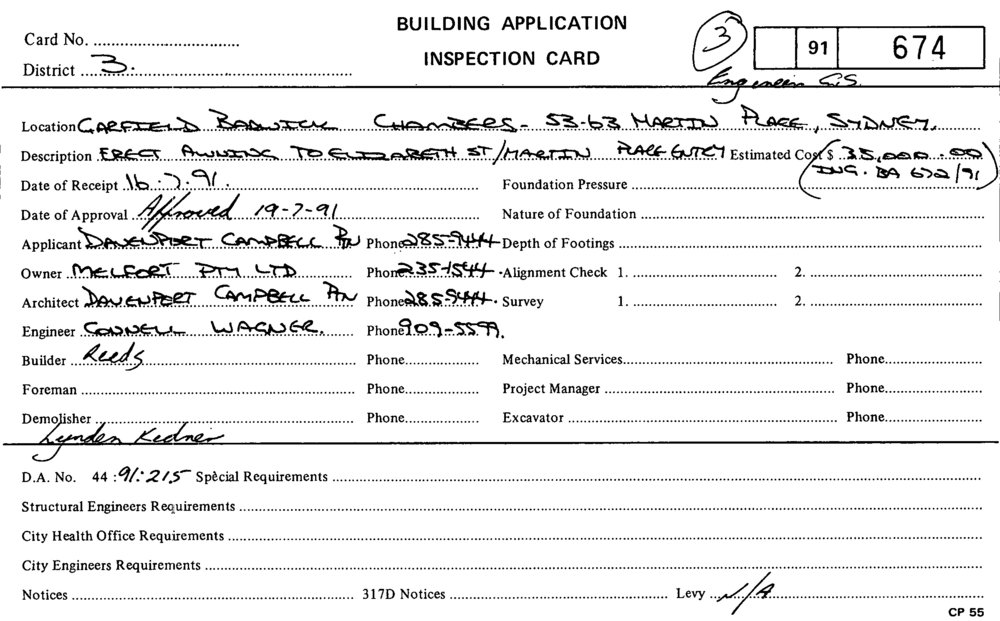 BUILDING APPLICATION
INSPECTION CARD
Card No.
District 3.
3
91 674
Engineer G.S.
Location GARFIELD BARWICK CHAMBERS - 53-63 MARTIN PLACE, SYDNEY.
Description ERECT AWNING TO ELIZABETH ST/MARTIN PLACE ENTRY Estimated Cost $ 35,000.00
INC. BA 672/91
Date of Receipt 16.7.91. Foundation Pressure
Date of Approval Approved 19-7-91 Nature of Foundation
Applicant DAVENPORT CAMPBELL Phone 285-9444 Depth of Footings
Owner MELFORT PTY LTD Phone 235-1544 Alignment Check 1. 2.
Architect DAVENPORT CAMPBELL Phone 285-9444. Survey 1. 2.
Engineer CONNELL WAGNER. Phone 909-5599.
Builder Reeds Phone Mechanical Services Phone
Foreman Phone Project Manager Phone
Demolisher Phone Excavator Phone
Lynden Kidner
D.A. No. 44:91:215 Special Requirements
Structural Engineers Requirements
City Health Office Requirements
City Engineers Requirements
Notices 317D Notices Levy N/A
CP 55